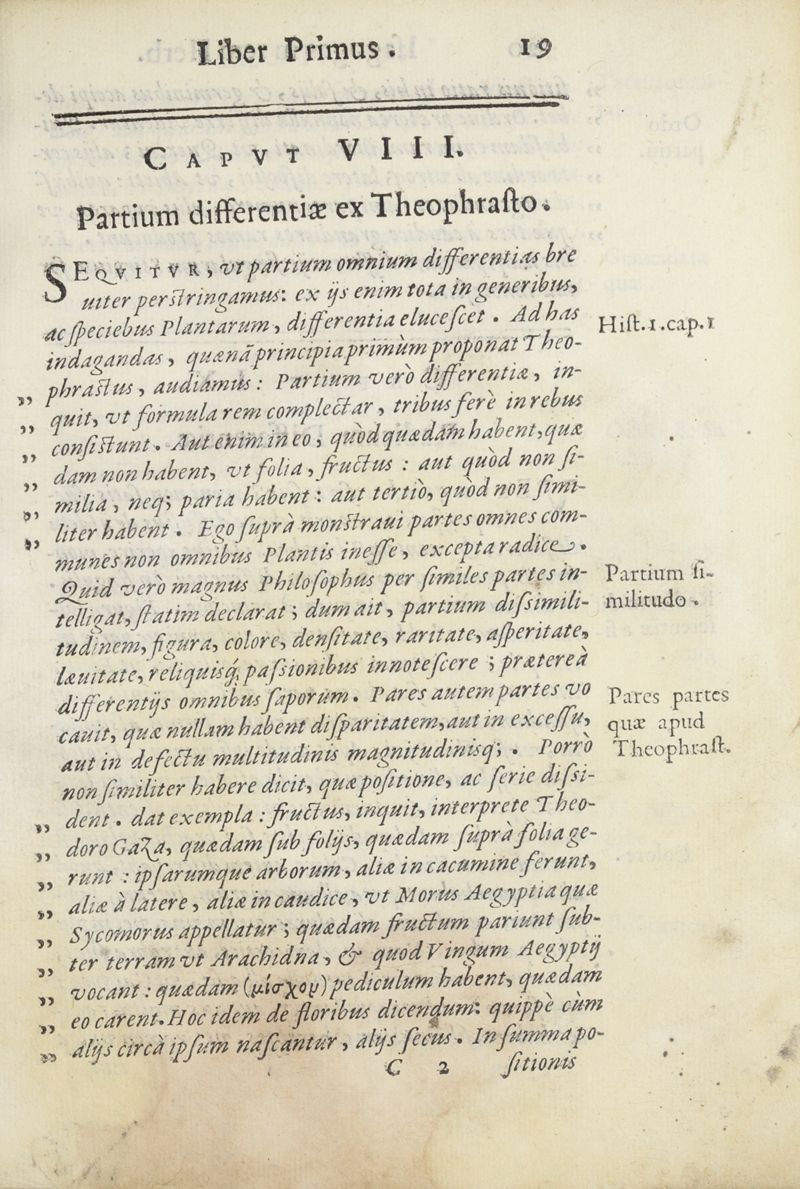 Liber Primus.
19
CAPVT VIII.
Partium differentiæ ex Theophraſto.
SEQVITVR, vt partium omnium differentias bre
uiter perſtringamus: ex ijs enim tota in generibus,
ac ſpeciebus Plantarum, differentia eluceſcet. Ad has
Hiſt.1.cap.1
indagandas, quænā principia primùm proponat Theo-
phraſtus, audiamus: Partium verò differentiæ, in-
„ quit, vt formula rem complectar, tribus ferè in rebus
„ conſiſtunt. Aut enim in eo, quòd quædam habent, quæ
„ dam non habent, vt folia, fructus: aut quòd non ſi-
„ milia, neq; paria habent: aut tertiò, quòd non ſimi-
„ liter habent. Ego ſuprà monſtraui partes omnes com-
„ munes non omnibus Plantis ineſſe, excepta radice.
Quid verò magnus Philoſophus per ſimiles partes in-
Partium ſi-
telligat, ſtatim declarat; dum ait, partium diſsimili-
militudo.
tudinem, figura, colore, denſitate, raritate, aſperitate,
læuitate, reliquisq́; paſsionibus innoteſcere; præterea
differentijs omnibus ſaporum. Pares autem partes vo
Pares partes
cauit, quæ nullam habent diſparitatem, aut in exceſſu,
quæ apud
aut in defectu multitudinis magnitudinisq;. Porrò
Theophraſt.
non ſimiliter habere dicit, quæ poſitione, ac ſerie diſsi-
dent. dat exempla: fructus, inquit, interprete Theo-
„ doro Gaza, quædam ſub folijs, quædam ſuprà folia ge-
„ runt: ipſarumque arborum, aliæ in cacumine ferunt,
„ aliæ à latere, aliæ in caudice, vt Morus Aegyptia quæ
„ Sycomorus appellatur; quædam fructum pariunt ſub-
„ ter terram vt Arachidna, & quod Vingum Aegyptij
„ vocant: quædam (μίσχον) pediculum habent, quædam
„ eo carent. Hoc idem de floribus dicendum: quippè cùm
„ alijs circà ipſum naſcantur, alijs ſecus. In ſumma po-
C 2 ſitionis